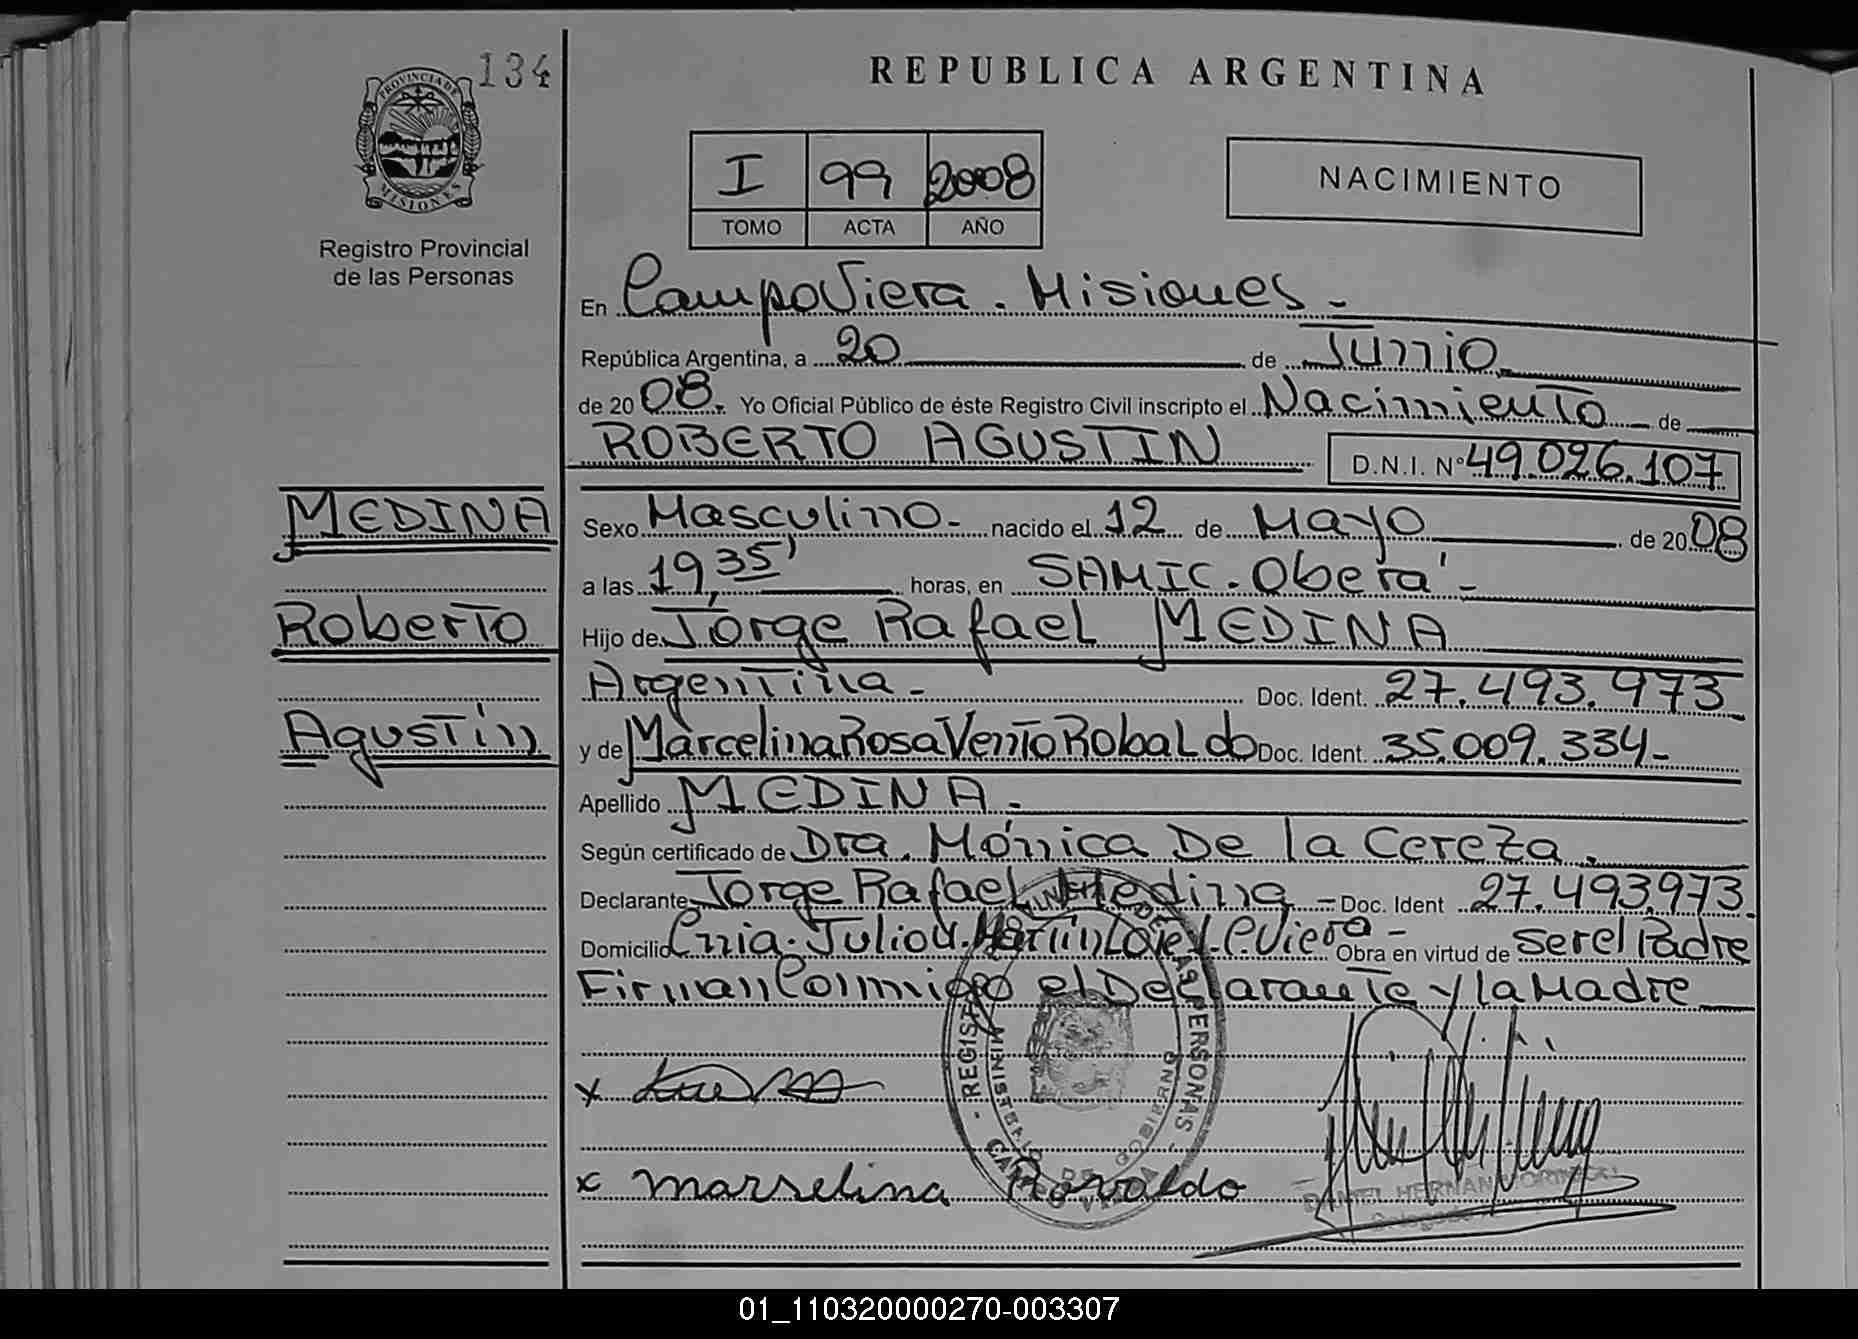 134
PROVINCIA DE
MISIONES
Registro Provincial
de las Personas
REPUBLICA ARGENTINA
I 99 2008
TOMO ACTA AÑO
NACIMIENTO
En Campo Viera. Misiones.-
República Argentina, a 20 de Junio
de 2008. Yo Oficial Público de éste Registro Civil inscripto el Nacimiento de
ROBERTO AGUSTIN D.N.I. Nº 49.026.107
MEDINA
Roberto
Agustín
Sexo Masculino.- nacido el 12 de Mayo de 2008
a las 19,35' horas, en SAMIC. Oberá-
Hijo de Jorge Rafael MEDINA
Argentina.- Doc. Ident. 27.493.973
y de Marcelina Rosa Vento Robaldo Doc. Ident. 35.009.334-
Apellido MEDINA.-
Según certificado de Dra. Mónica De la Cereza.
Declarante Jorge Rafael Medina - Doc. Ident 27.493973.
Domicilio Cnia. Julio U. Martín C. Viera - Obra en virtud de ser el Padre
Firman Conmigo el Declarante y la Madre
x
x marselina Rovaldo
REGISTRO PROVINCIAL DE LAS PERSONAS
MINISTERIO DE GOBIERNO
CAMPO VIERA
DANIEL HERNAN
Delegado
01_110320000270-003307